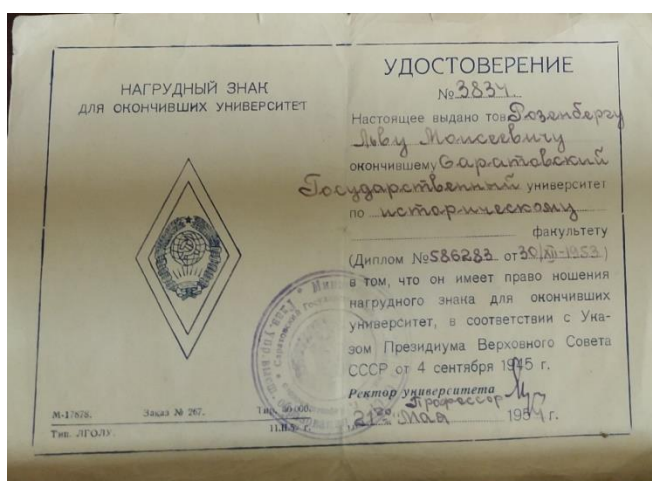 НАГРУДНЫЙ ЗНАК
ДЛЯ ОКОНЧИВШИХ УНИВЕРСИТЕТ
М-17678. Заказ № 267. Тир.
Тип. ЛГОЛУ.
УДОСТОВЕРЕНИЕ
№ 3834.
Настоящее выдано тов. Розенбергу
Льву Моисеевичу
окончившему Саратовский
Государственный университет
по историческому
факультету
(Диплом № 586283 от 30/XII-1953)
в том, что он имеет право ношения
нагрудного знака для окончивших
университет, в соответствии с Ука-
зом Президиума Верховного Совета
СССР от 4 сентября 1945 г.
Ректор университета
Профессор
21го "Мая 1954 г.